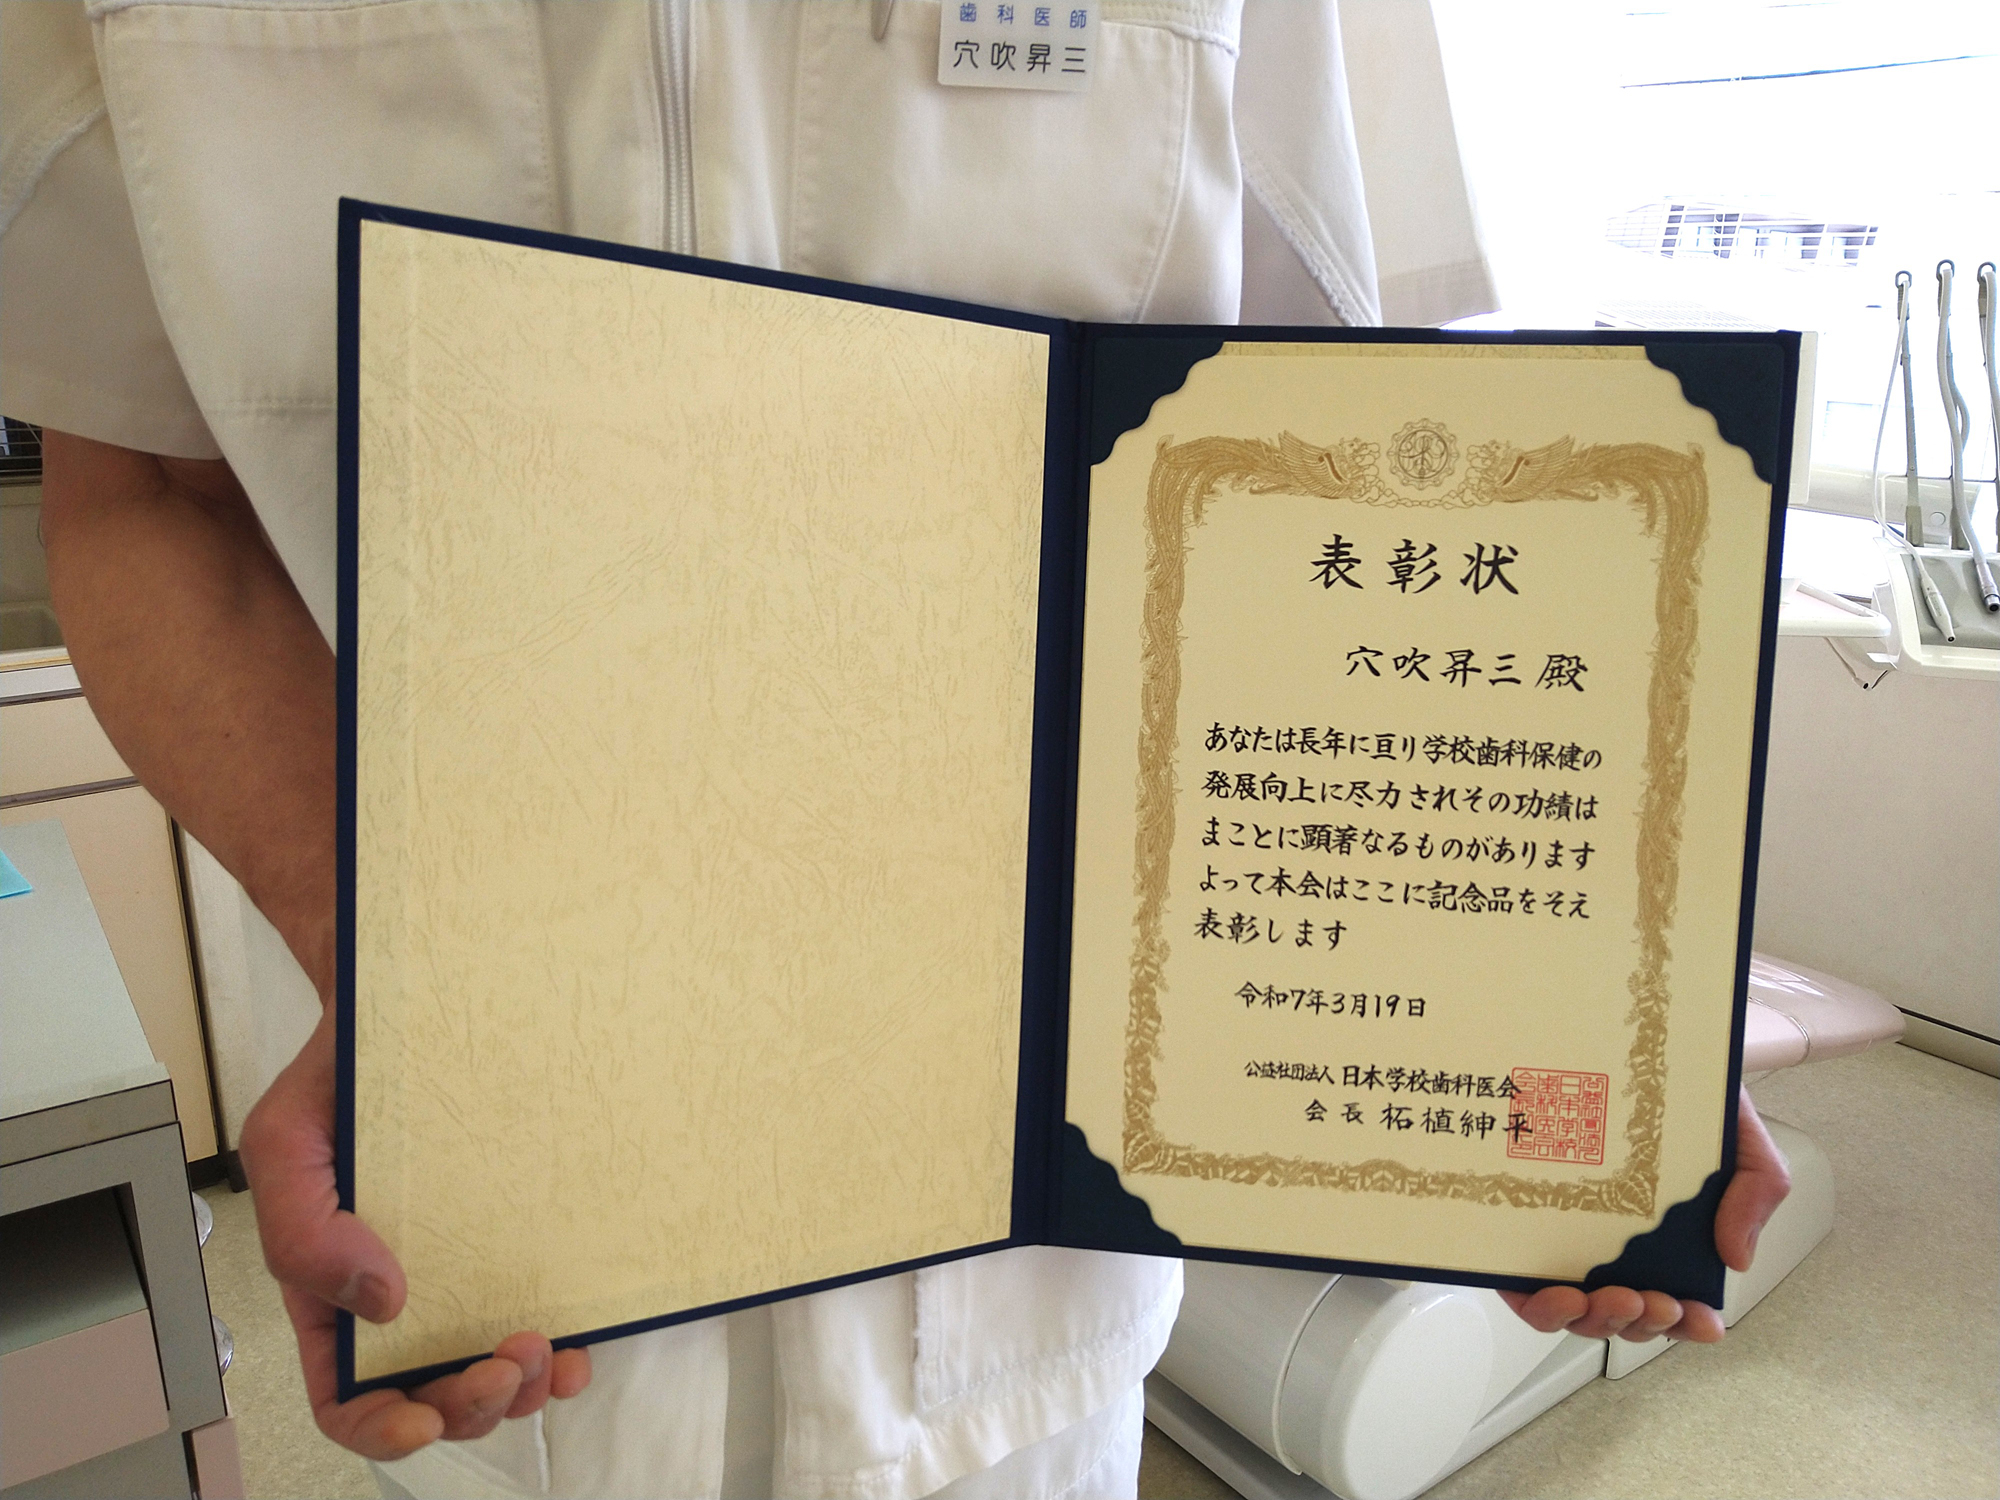 歯科医師
穴吹昇三
表彰状
穴吹昇三 殿
あなたは長年に亘り学校歯科保健の
発展向上に尽力されその功績は
まことに顕著なるものがあります
よって本会はここに記念品をそえ
表彰します
令和7年3月19日
公益社団法人 日本学校歯科医会
会長 柘植紳平